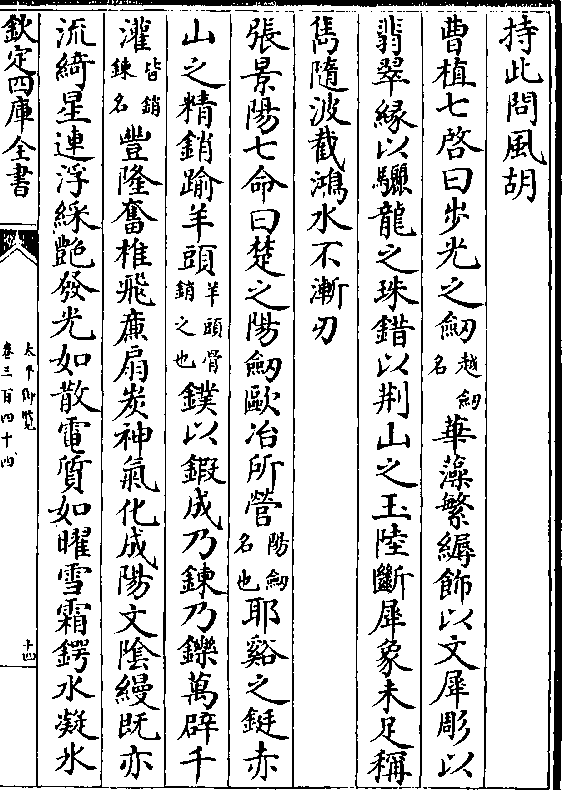 持此問風胡
曹植七啓曰步光之劒越劒名華藻繁縟飾以文犀彫以
翡翠緣以驪龍之珠錯以荆山之玉陸斷犀象未足稱
雋隨波截鴻水不漸刃
張景陽七命曰楚之陽劒歐冶所營陽劒名也耶谿之鋌赤
山之精銷踰羊頭羊頭骨銷之也鏷以鍛成乃鍊乃鑠萬辟千
灌皆銷鍊名豐隆奮椎飛廉扇炭神氣化成陽文陰縵旣亦
流綺星連浮綵艷發光如散電質如曜雪霜鍔水凝水
欽定四庫全書
太平御覽
卷三百四十四
十四